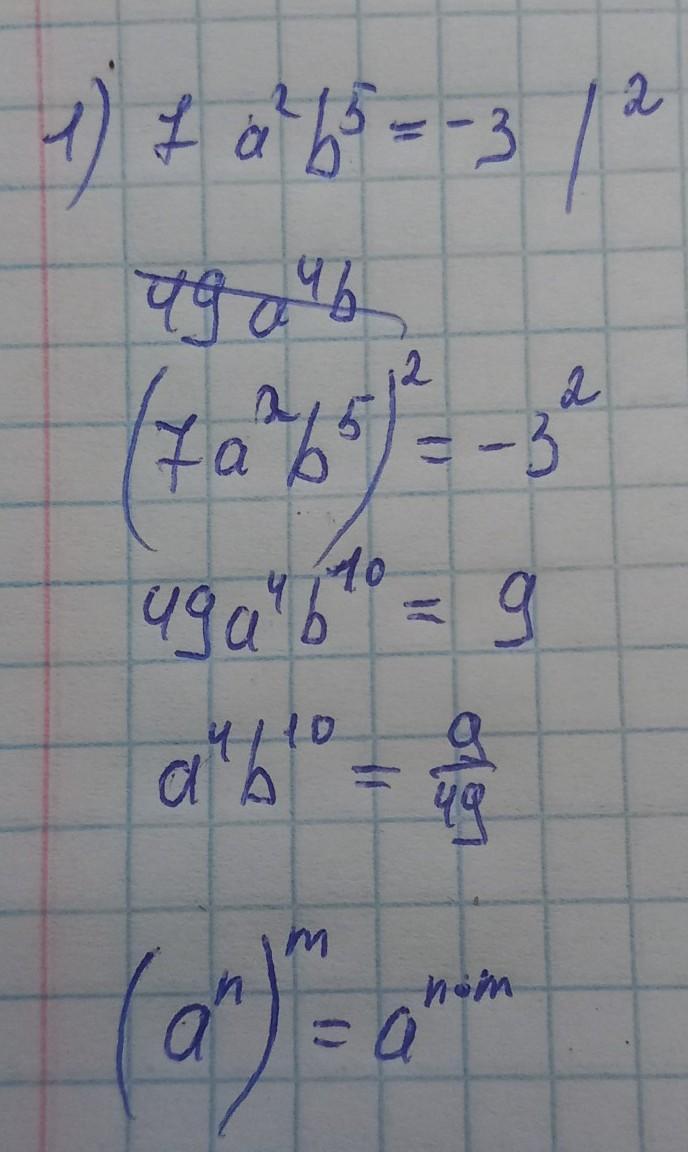 1) 7 a²b⁵ = -3 / ²
49a⁴b
(7a²b⁵)² = -3²
49a⁴b¹⁰ = 9
a⁴b¹⁰ = 9/49
(aⁿ)ᵐ = aⁿ·ᵐ